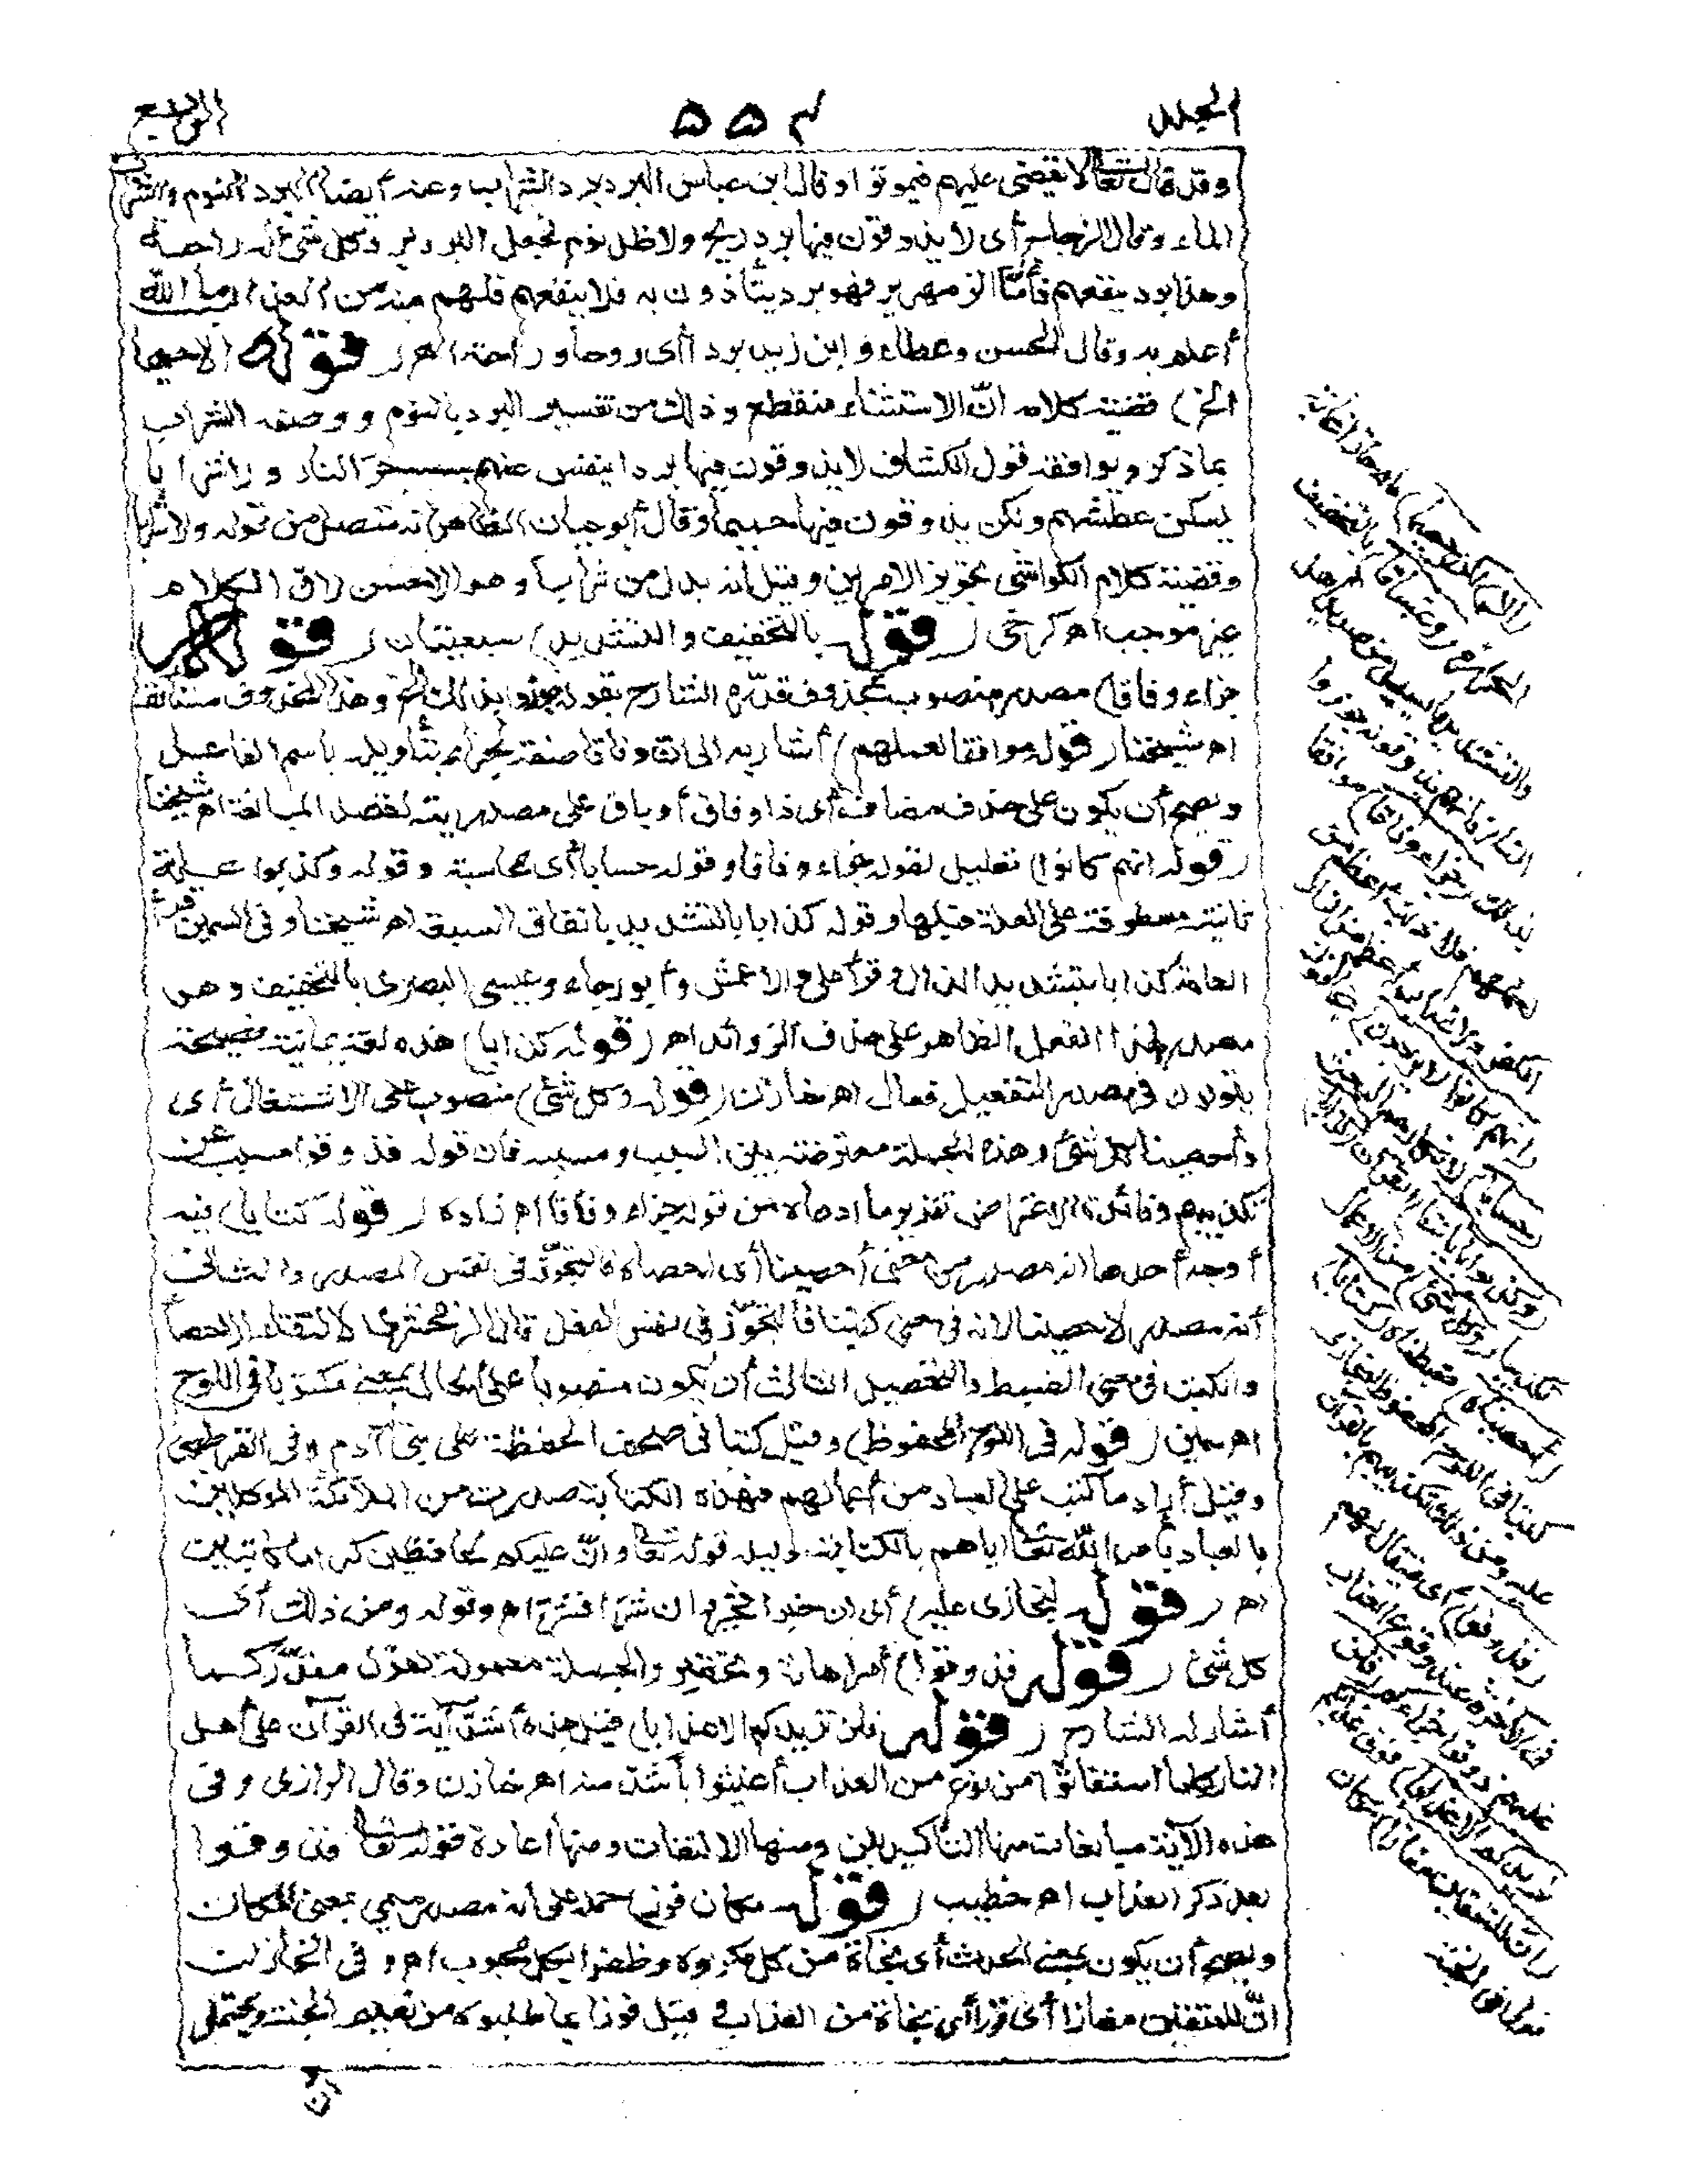 المجلد
٤٥٥
الرابع
وقد قال تعالى لا يقضى عليهم فيموتوا وقال ابن عباس البرد برد الشراب وعنه أيضا البرد النوم والشراب
الماء وقال الزجاج أى لا يذوقون فيها برد ريح ولا ظل نوم فجعل البرد برد كل شئ له راحة
وهذا برد ينفعهم فأمّا الزمهرير فهو برد يتأذون به فلا ينفعهم فلهم منه من العذاب ما الله
أعلم به وقال الحسن وعطاء وابن زيد بردا أى روحا وراحة اهر (قوله الا حميما
الخ) قضية كلامه انّ الاستثناء منقطع وذلك من تفسير البرد بالنوم ووصف الشراب
بما ذكر ويوافقه قول الكشاف لا يذوقون فيها بردا ينفس عنهم حرّ النار ولا شرابا
يسكن عطشهم ولكن يذوقون فيها حميما وقال أبو حيان الظاهر انه متصل من قوله ولا شرابا
وقضية كلام الكواشى تجويز الامرين وقيل انه بدل من شرابا وهو الاحسن لاق الكلام
غير موجب اهر كرخى (قوله بالتخفيف والتشديد) سبعيتان (قوله
جزاء وفاقا) مصدر منصوب بمحذوف قدّره الشارح بقوله جوزوا بذلك الخ وهذا المحذوف مستأنف
اهر شيخنا (قوله موافقا لعملهم) أشار به الى انّ وفاقا صفة لجزاء بتأويله باسم الفاعل
ويصح أن يكون على حذف مضاف أى ذا وفاق أو باق على مصدريته لقصد المبالغة اهر شيخنا
(قوله انهم كانوا) تعليل لقوله جزاء وفاقا وقوله حسابا أى محاسبة وقوله وكذبوا علة
ثانية معطوفة على العلة قبلها وقوله كذابا بالتشديد باتفاق السبعة اهر شيخنا وفى السمين قرأ
العامة كذابا بتشديد الذال وقرأ على والاعمش وأبو رجاء وعيسى البصرى بالتخفيف وهو
مصدر لهذا الفعل الظاهر على حذف الزوائد اهر (قوله كذابا) هذه لغة يمانية فصيحة
يقولون فى مصدر التفعيل فعال اهر خازن (قوله وكل شئ) منصوب على الاشتغال أى
وأحصينا كل شئ وهذه الجملة معترضة بين السبب ومسببه فان قوله فذوقوا مسبب عن
تكذيبهم وفائدة الاعتراض تقرير ما ادعاه من قوله جزاء وفاقا اهر زاده (قوله كتابا) فيه
أوجه أحدها انه مصدر من معنى أحصينا أى احصاء فالتجوّز فى نفس المصدر والثانى
أنه مصدر لاحصينا لانه فى معنى كتبنا فالتجوّز فى نفس الفعل قال الزمخشرى لالتقاء الاحصاء
والكتب فى معنى الضبط والتحصيل الثالث أن يكون منصوبا على الحال بمعنى مكتوبا فى اللوح
اهر سمين (قوله فى اللوح المحفوظ) وقيل كتبا فى صحف الحفظة على بنى آدم وفى القرطبى
وقيل أراد ما كتب على العباد من أعمالهم فهذه الكتابة صدرت من الملائكة الموكلين
بالعباد بأمر الله تعالى اياهم بالكتابة دليله قوله تعالى وانّ عليكم لحافظين كراما كاتبين
اهر (قوله ليجازى عليه) أى ان خيرا فخير وان شرا فشرّ اهر وقوله ومن ذلك أى
كل شئ (قوله فذوقوا) أمر اهانة وتحقير والجملة معمولة لقول مقدّر كما
أشار له الشارح (قوله فلن نزيدكم الا عذابا) قيل هذه أشدّ آية فى القرآن على أهل
النار كلما استغاثوا من نوع من العذاب أغيثوا بأشدّ منه اهر خازن وقال الرازى وفى
هذه الآية مبالغات منها التأكيد بلن ومنها الالتفات ومنها اعادة قوله تعالى فذوقوا
بعد ذكر العذاب اهر خطيب (قوله مكان فوز) حمله على انه مصدر ميمى بمعنى المكان
ويصح أن يكون بمعنى الحدث أى نجاة من كل مكروه وظفرا بكل محبوب اهر وفى الخازن
انّ للمتقين مفازا أى فوزا أى نجاة من العذاب وقيل فوزا بما طلبوه من نعيم الجنة ويحتمل
(الا) لكن (حميما) ماء حارا غاية
الحر (وغساقا) بالتخفيف
والتشديد ما يسيل من صديد أهل
النار فانهم يذوقونه جوزوا
بذلك (جزاء وفاقا) موافقا
لعملهم فلا ذنب أعظم من
الكفر ولا عذاب أعظم من النار
(انهم كانوا لا يرجون) يخافون
(حسابا) لانكارهم البعث
(وكذبوا بآياتنا) القرآن (كذابا)
تكذيبا (وكل شئ) من الاعمال
(أحصيناه) ضبطناه (كتابا)
كتبا فى اللوح المحفوظ لنجازى
عليه ومن ذلك تكذيبهم بالقرآن
(فذوقوا) أى فيقال لهم
فى الآخرة عند وقوع العذاب
عليهم ذوقوا جزاءكم (فلن
نزيدكم الا عذابا) فوق عذابكم
(انّ للمتقين مفازا) مكان
فوز فى الجنة